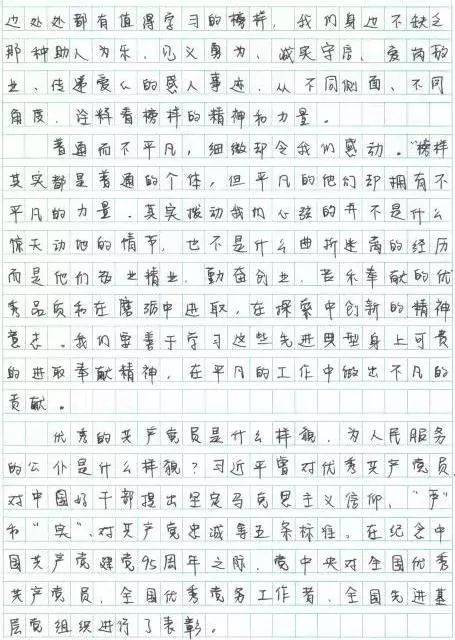 边处处都有值得学习的榜样，我们身边不缺乏
那种助人为乐、见义勇为、诚实守信、爱岗敬
业、传递爱心的感人事迹，从不同侧面、不同
角度，诠释着榜样的精神和力量。
普通而不平凡，细微却令我们感动。“榜样
其实都是普通的个体，但平凡的他们却拥有不
平凡的力量。真实拨动我们心弦的并不是什么
惊天动地的情节，也不是什么曲折迷离的经历
而是他们敬业精业、勤奋创业、苦乐奉献的优
秀品质和在磨砺中进取，在探索中创新的精神
意志。我们要善于学习这些先进典型身上可贵
的进取奉献精神，在平凡的工作中做出不凡的
贡献。
优秀的共产党员是什么样貌，为人民服务
的公仆是什么样貌？习近平曾对优秀共产党员
对中国好干部提出坚定马克思主义信仰、“严”
和“实”、对共产党忠诚等五条标准。在纪念中
国共产党建党95周年之际，党中央对全国优秀
共产党员、全国优秀党务工作者、全国先进基
层党组织进行了表彰。